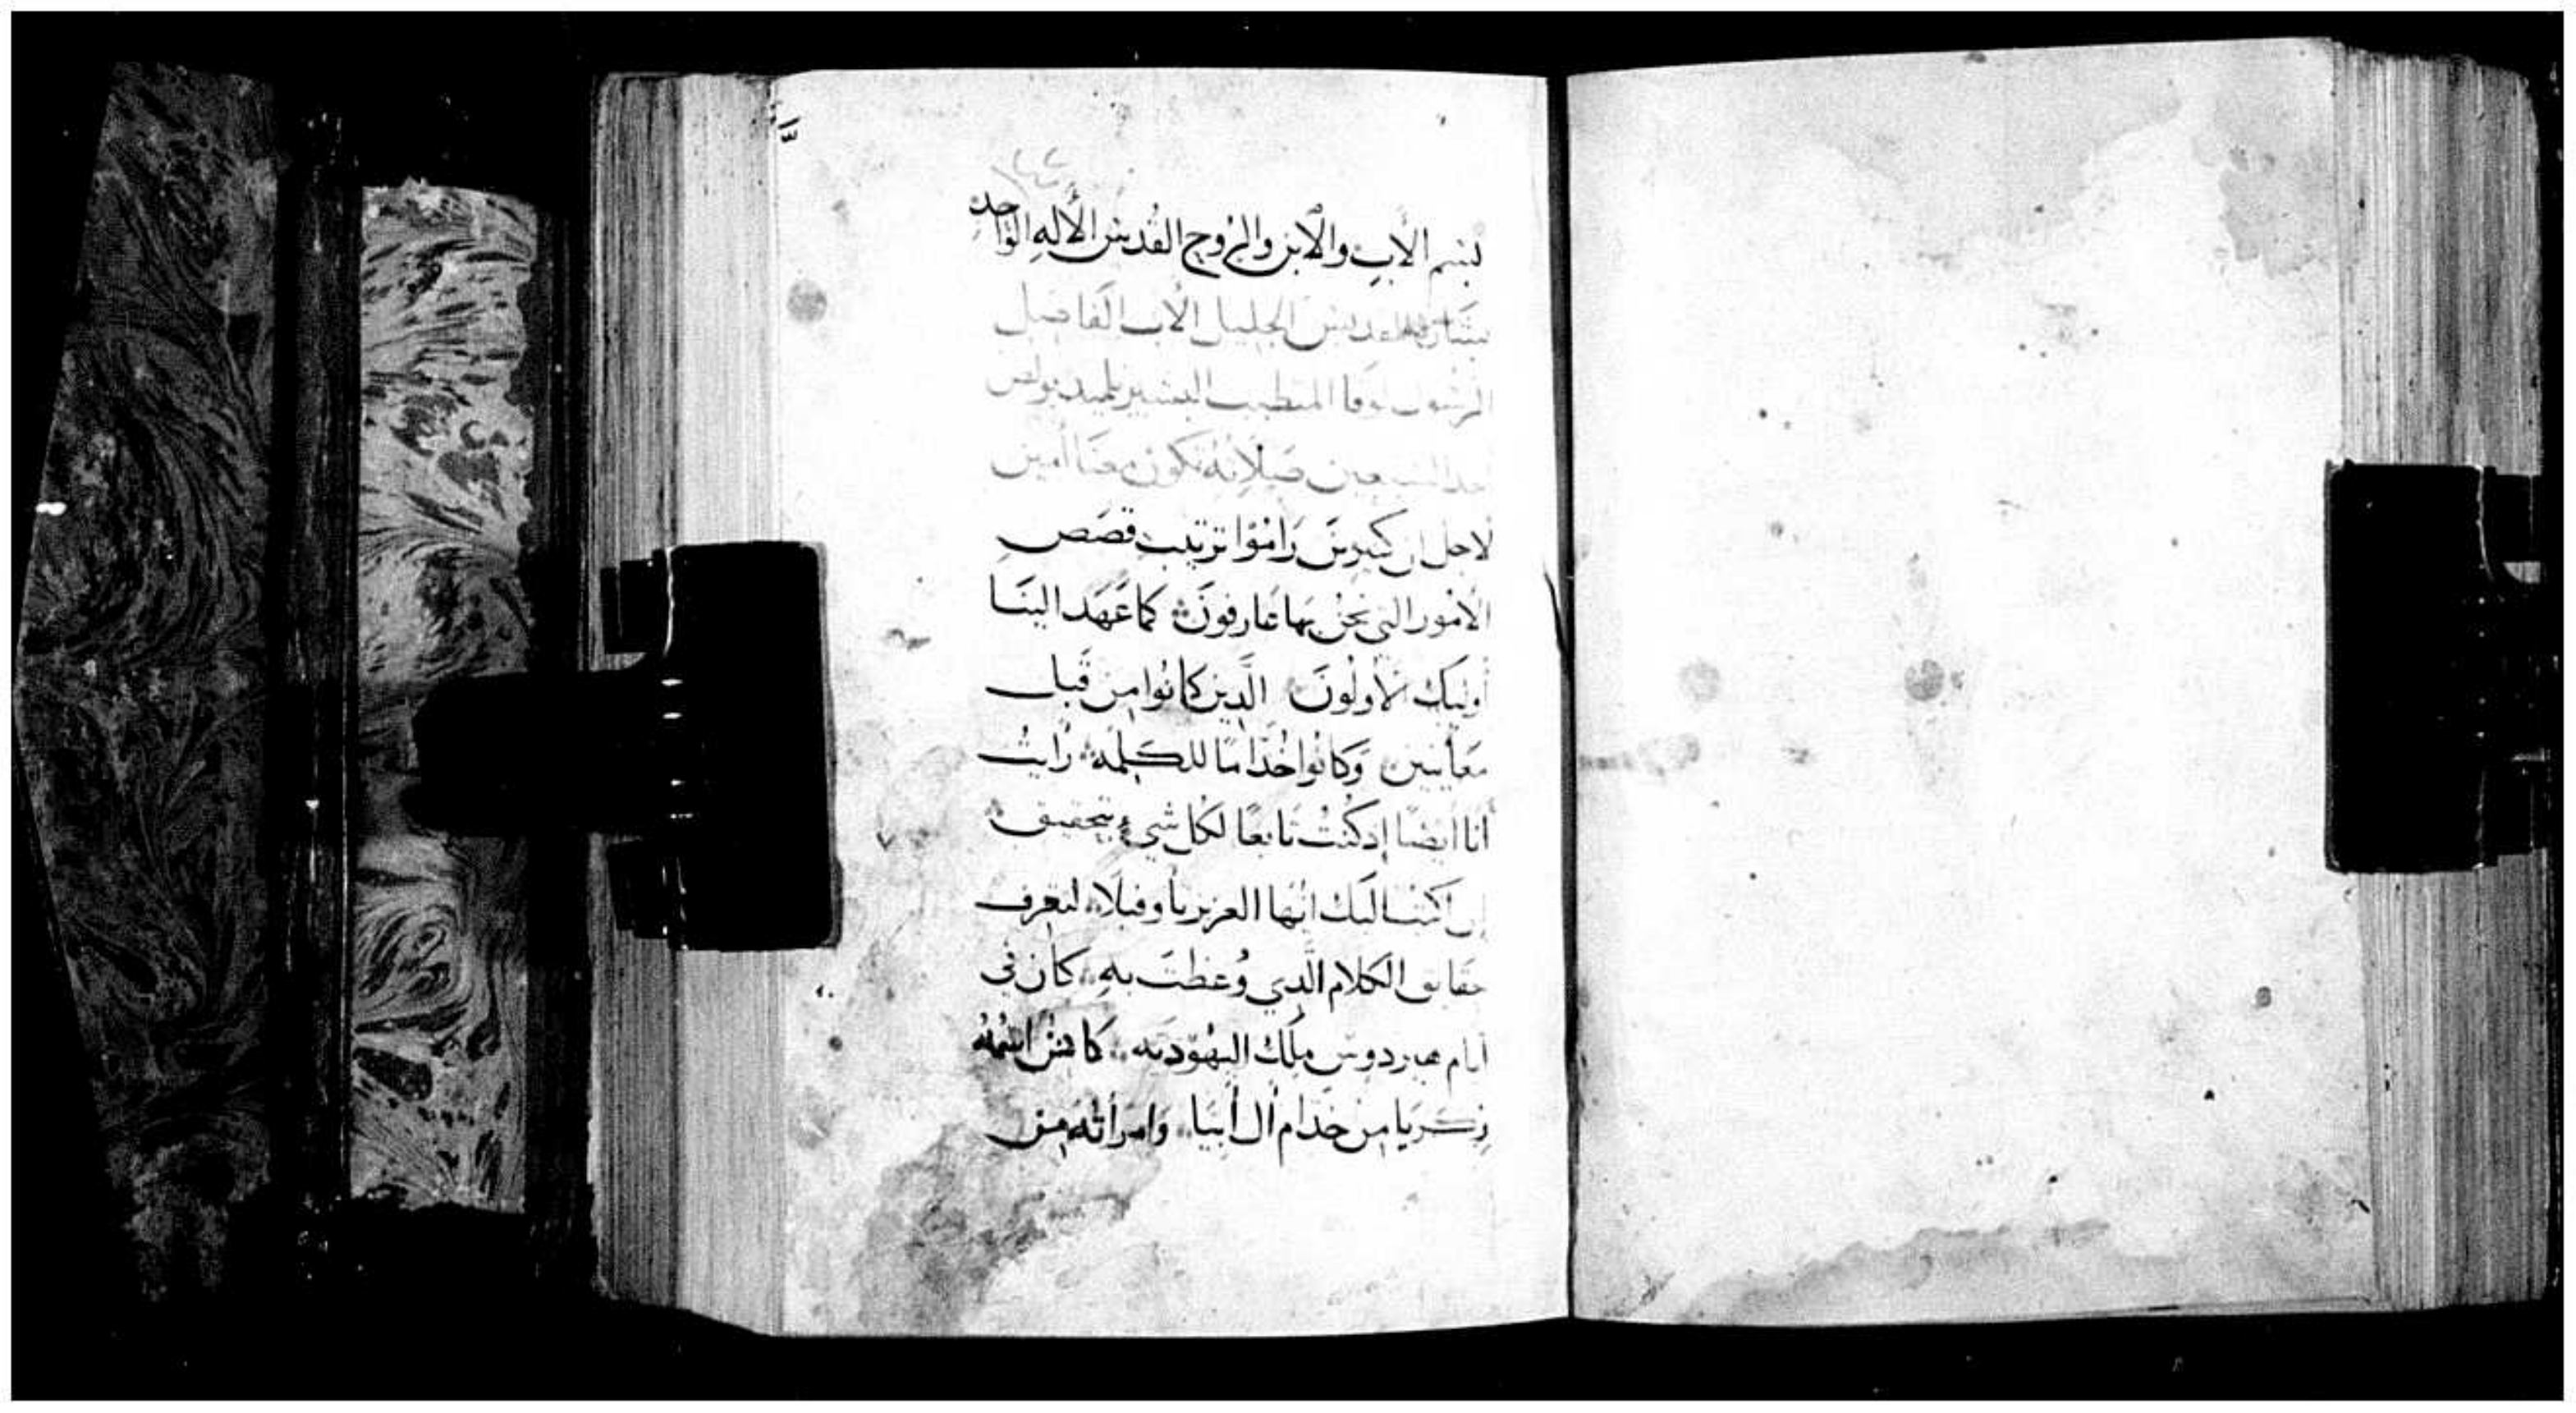 بسم الاب والابن والروح القدس الاله الواحد
بشارة القديس الجليل الاب الفاضل
الرسول لوقا المتطبب البشير تلميد بولص
احد السبعين صلاته تكون معنا امين
لاجل ان كثيرين رَامُوا ترتيب قصَص
الامُور التي نحنُ بهَا عَارفونَ كما عَهَد الينَا
أوليك الأولُونَ الَّدين كانُوا من قَبل
مُعَاينين وَكانُوا خُدّامًا للكلمَة رَأيتُ
أنا أيضًا إد كُنتُ تَابعًا لكُل شيءٍ بتحقيق
ان اكتب اليك ايُها العزيز ياوفيلا لتعرف
حقايق الكلام الَّدي وُعظتَ به كان في
أيام هيردوس ملك اليهُوديه كاهنٌ اسْمُهُ
زكريا من خدام أل أبيَا وَامرَأتُه من